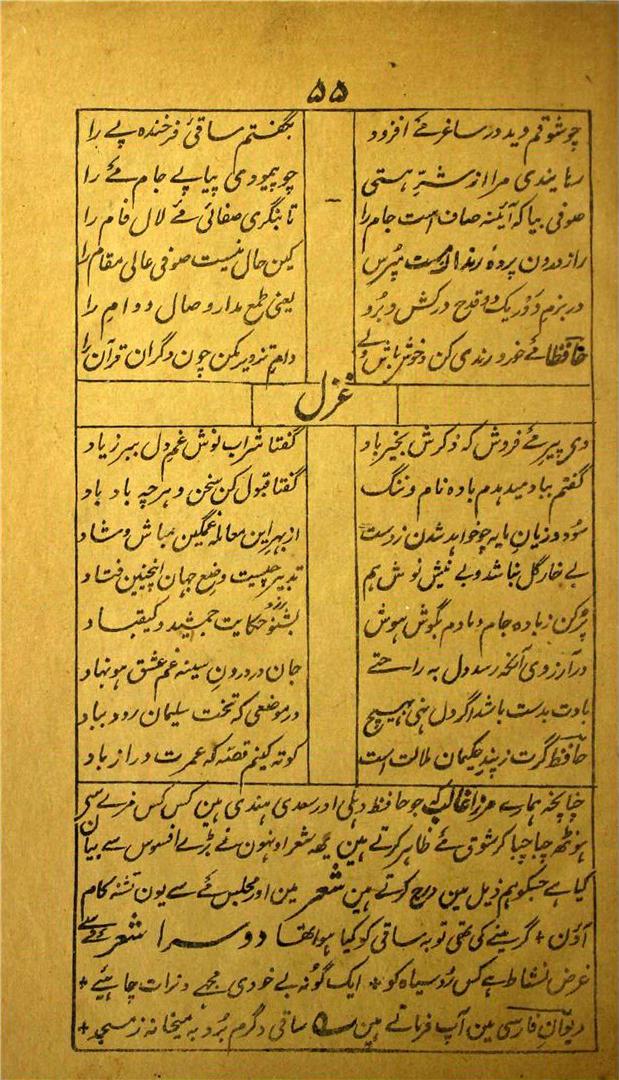 ۵۵
چو شوقم دید در ساغر مے افزود بگفتم ساقیٔ فرخنده پے را
رہانیدی مرا از شرِّ ہستی چو پیمودی پیاپے جام مے را
صوفی بیا کہ آئینہ صاف است جام را تا بنگری صفائی مے لال فام را
راز درون پردہ ز رندان مست پُرس کین حال نیست صوفی عالی مقام را
در بزم دَور یک دو قدح درکش و برُو یعنی طمع مدار وصال دوامِ را
حافظا مے خور و رندی کن و خوش باش ولے دام تزویر مکن چون دگران قرآن را
غزل
دی پیرِ مے فروش کہ ذکرش بخیر باد گفتا شراب نوش غمِ دل ببر زیاد
گفتم بباد میدہدم بادہ نام و ننگ گفتا قبول کن سخن و ہر چہ باد باد
سُود و زیان و مایہ چو خواہد شدن ز دست از بہرِ این معاملہ غمگین مباش و شاد
بے خار گل نباشد و بے نیش نوش ہم تدبیر چیست وضعِ جہان اینچنین فتاد
پُر کن ز بادہ جام و دمادم بگوش ہوش بشنو ازو حکایت جمشید و کیقباد
در آرزوی آنکہ رسد دل بہ راحتے جان در درونِ سینہ غم عشق او نہاد
بادت بدست باشد اگر دل نہی بہیچ در موضعی کہ تخت سلیمان رود بباد
حافظ گرت ز پندِ حکیمان ملالت است کوتہ کنیم قصّہ کہ عمرت دراز باد
چنانچہ ہمارے مرزا غالب کہ جو حافظ دہلی اور سعدی ہندی ہین کس کس مزے سے
ہونٹھ چاچبا کر شوق مے ظاہر کرتے ہین یہ شعر اونہون نے بڑے افسوس سے بیان
کیا ہے جسکو ہم ذیل مین درج کرتے ہین شعر مین اور مجلس مے سے یون تشنہ کام
آؤن + گر مینے کی تھی توبہ ساقی کو کیا ہوا تھا دوسرا شعر مے سے
غرض نشاط ہے کس رُو سیاہ کو + ایک گونہ بے خودی مجھے دن رات چاہیے +
دیوان فارسی مین آپ فرماتے ہین ساقی دگرم بُرد بہ میخانہ ز مسجد +